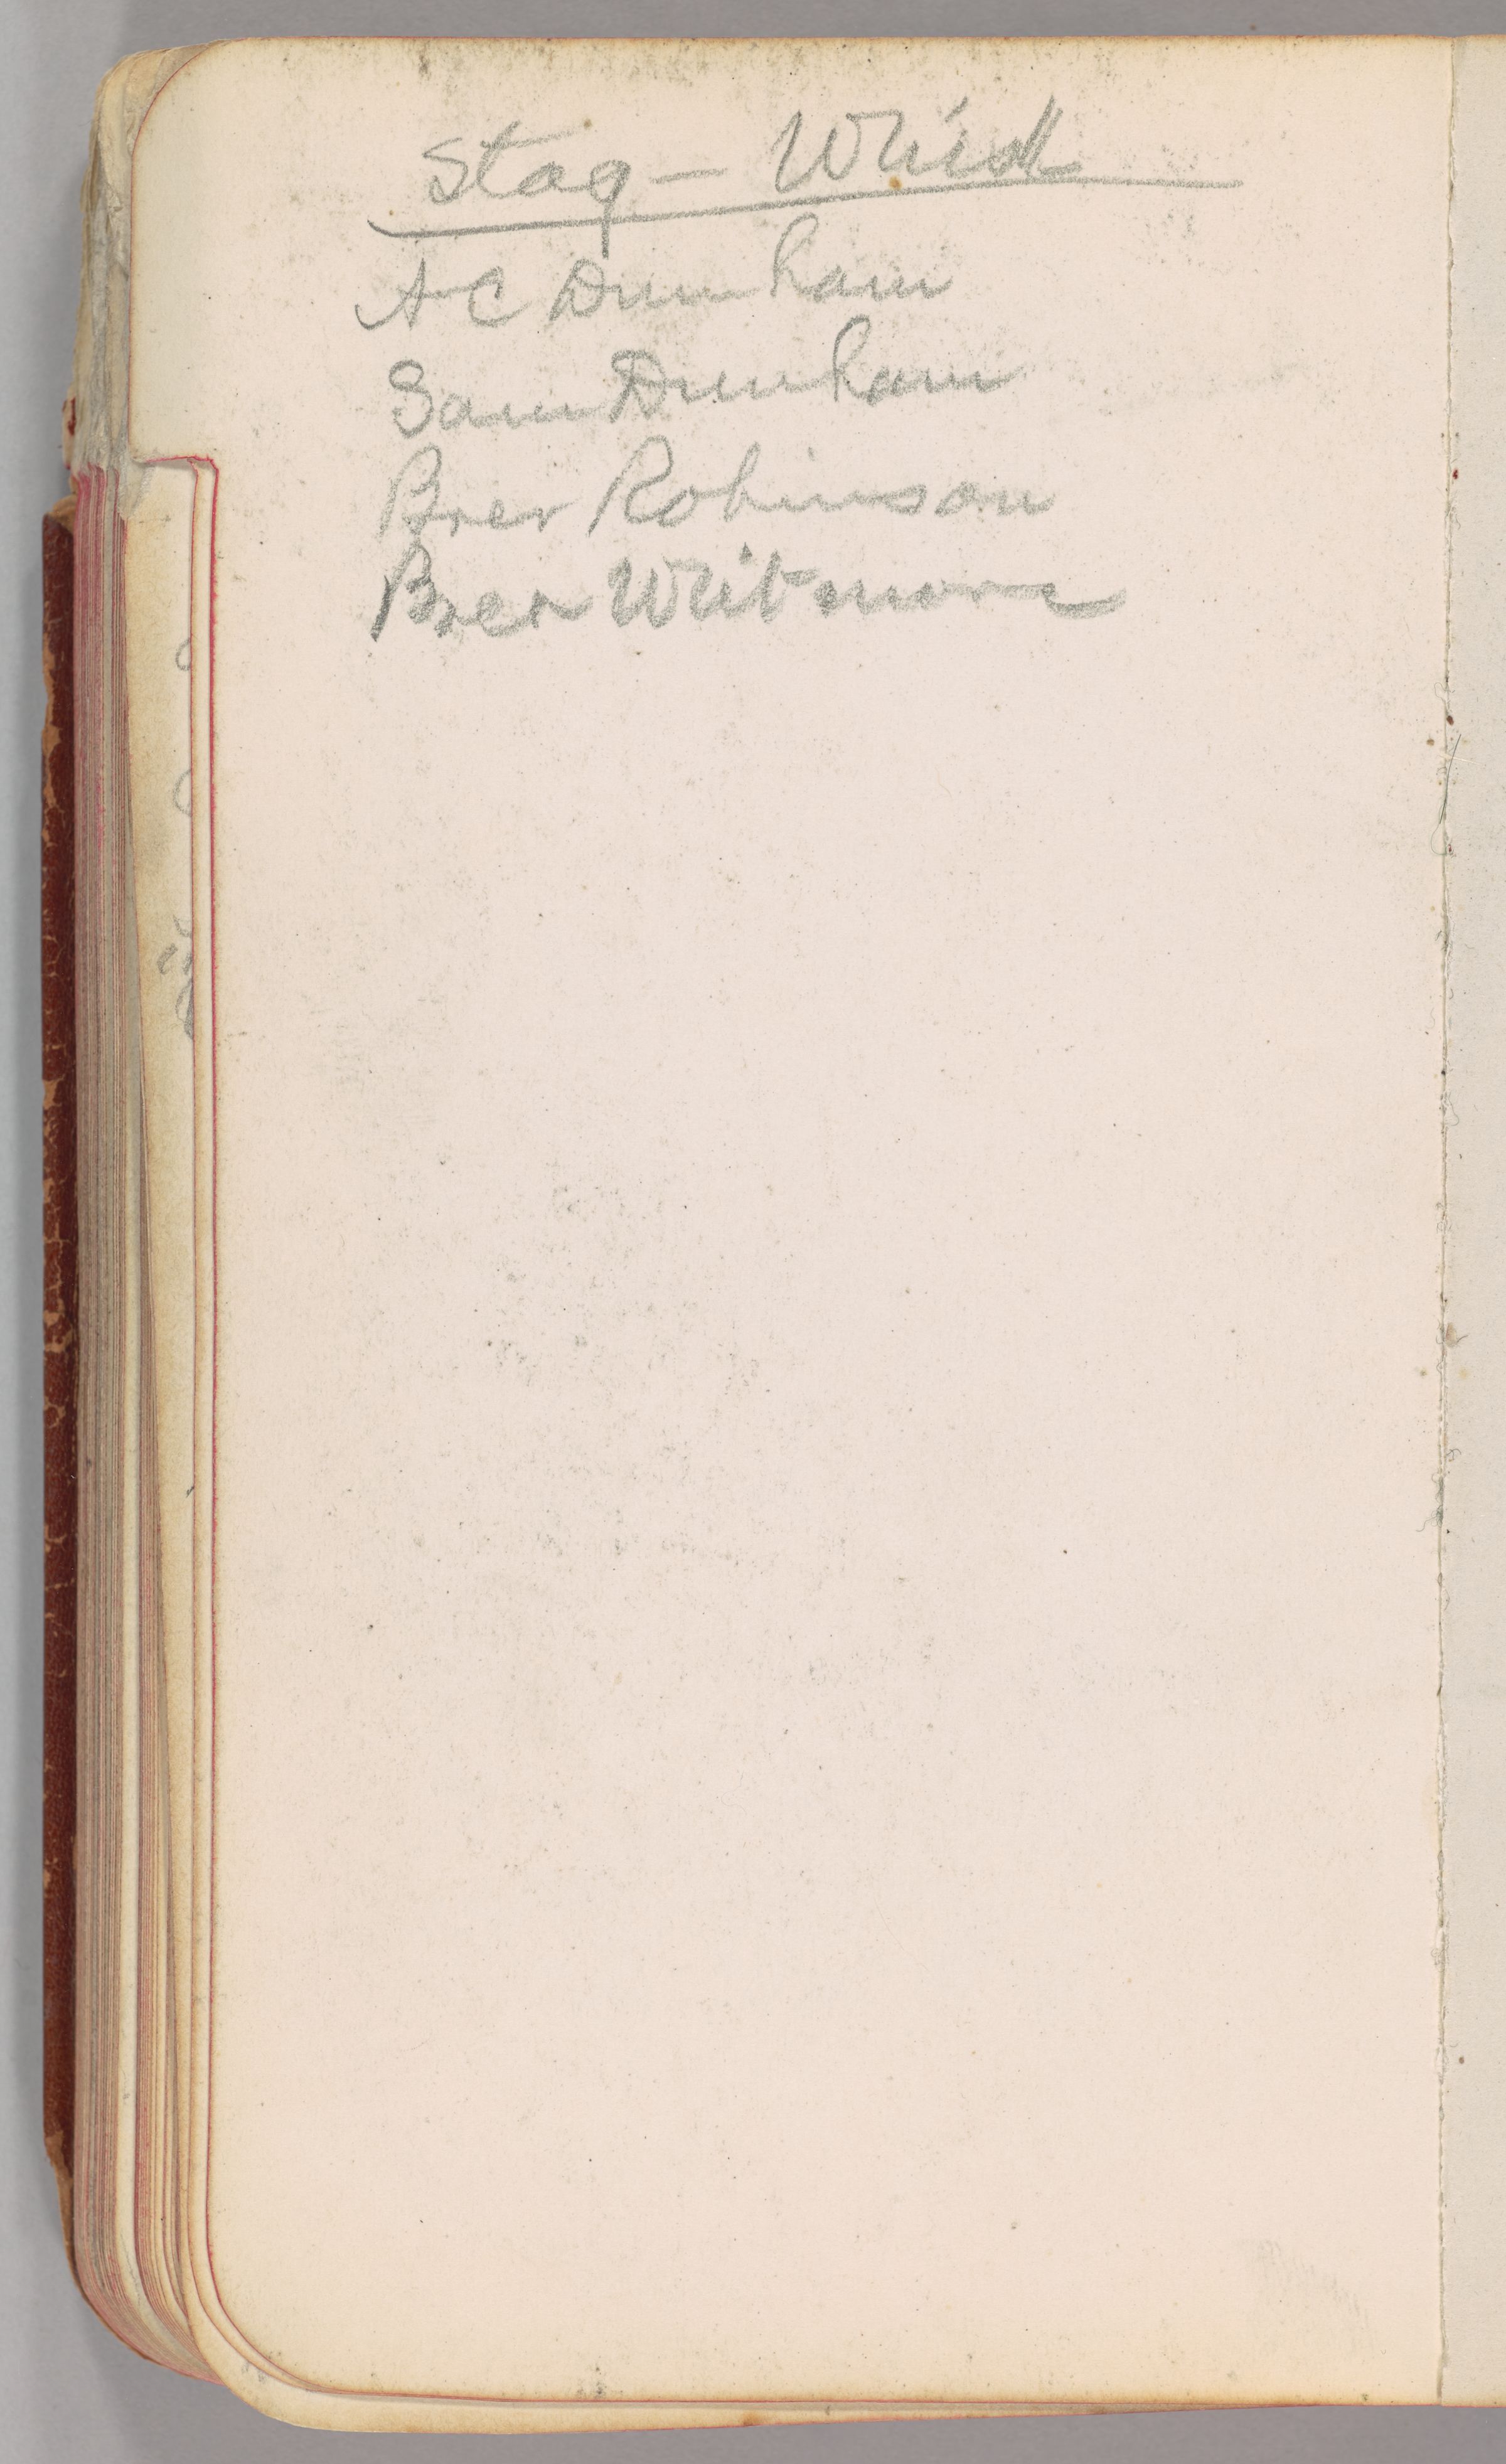 Stag - Whist
A C Dunham
Sam Dunham
Brer Robinson
Brer Whitmore